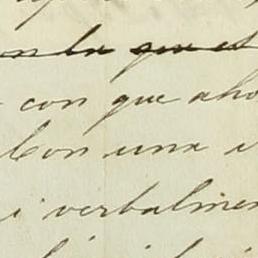 en la que et
con que aho
con una i
i verbalmen